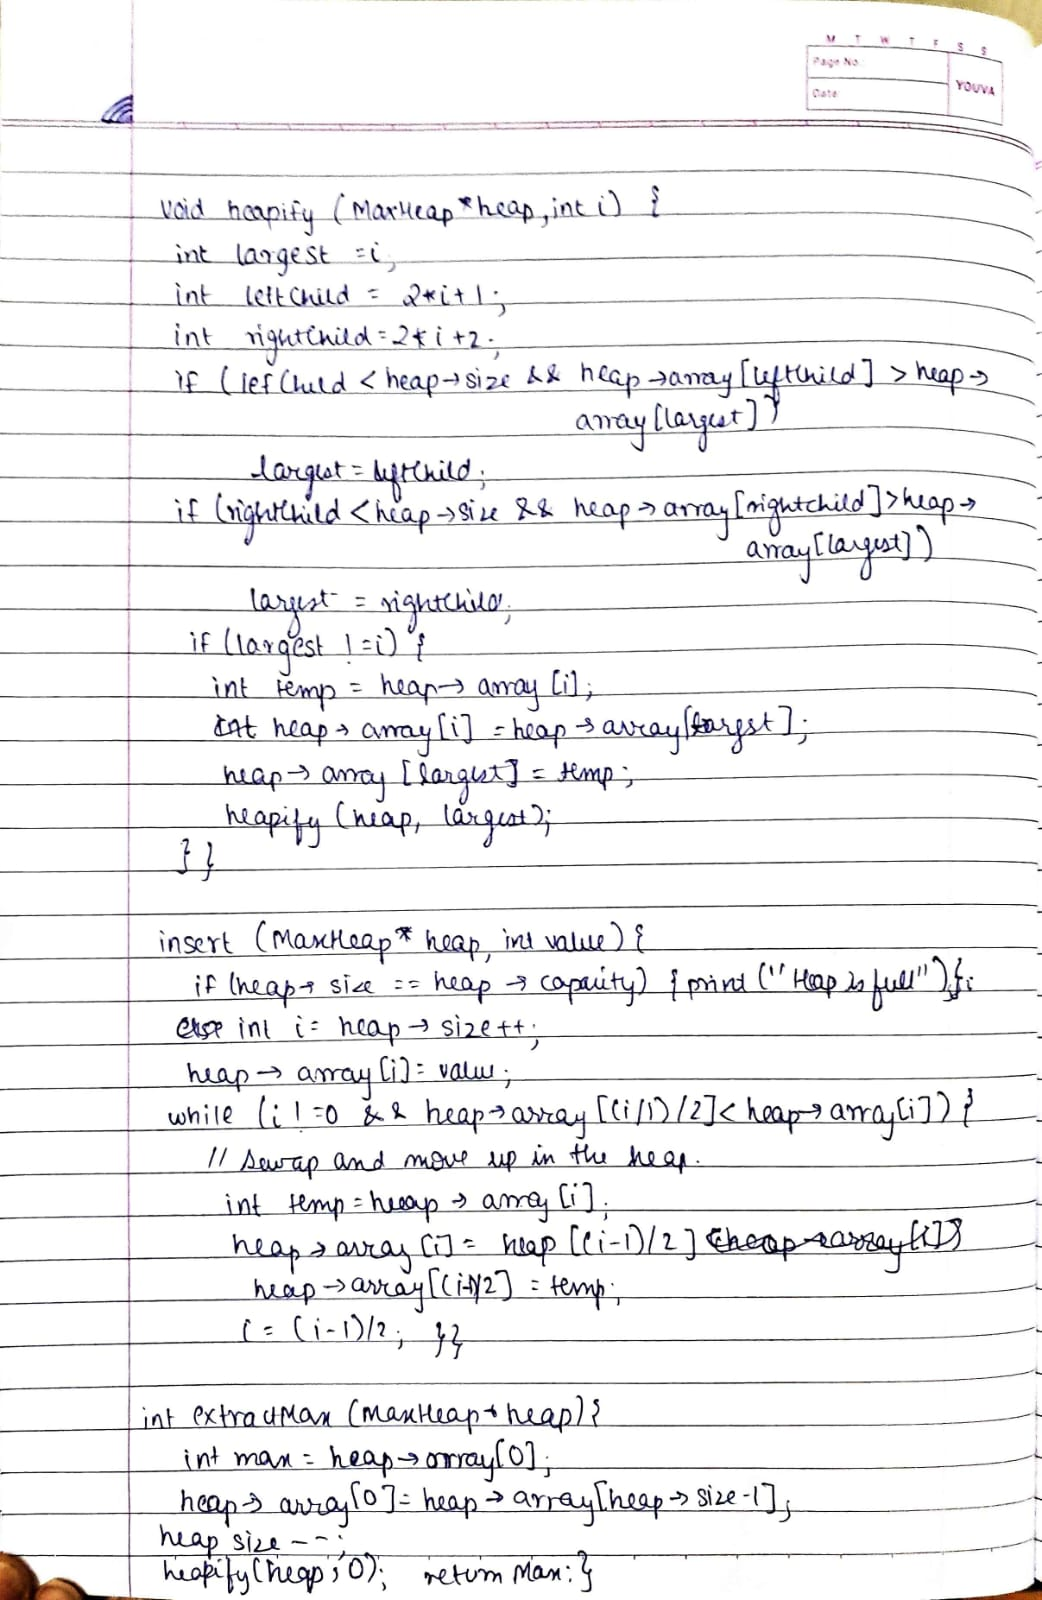 M T W T F S S
Page No.
YOUVA
Date
void heapify (MaxHeap *heap, int i) {
int largest = i;
int leftChild = 2*i+1;
int rightChild = 2*i+2;
if (lefChild < heap→size && heap→array[leftChild] > heap→
array[largest])
largest = leftChild;
if (rightChild < heap→size && heap→array[rightchild] > heap→
array[largest])
largest = rightChild;
if (largest != i) {
int temp = heap→ array [i];
int heap→ array[i] = heap→array[largst];
heap→ array [largest] = temp;
heapify (heap, largest);
} }
insert (MaxHeap* heap, int value) {
if (heap→ size == heap → capacity) { print ("Heap is full")};
else int i = heap→ size++;
heap→ array[i] = value;
while (i != 0 && heap→array [(i/1)/2] < heap→ array[i]) {
// Swap and move up in the heap.
int temp = heap → array [i];
heap→array [i] = heap [(i-1)/2]
heap→array[(i-1)/2] = temp;
i = (i-1)/2; }}
int extractMax (MaxHeap* heap) {
int max = heap→array[0];
heap→ array[0] = heap→array[heap→ size-1];
heap size --;
heapify(heap, 0); return Max; }